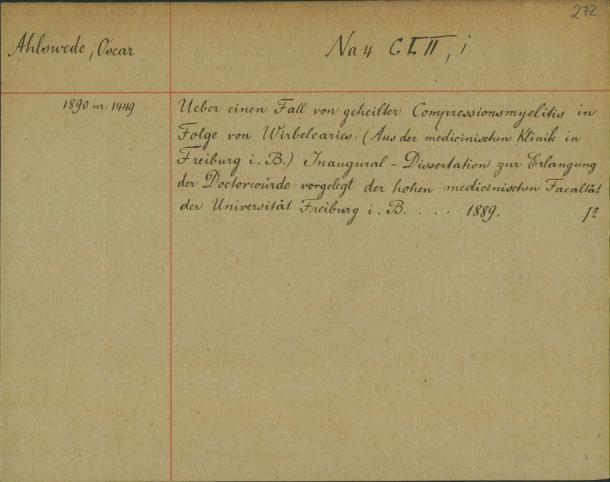 272
Ahlswede, Oscar
Na 4 C L II, i
1890 nr. 1449
Ueber einen Fall von geheilter Compressionsmyelitis in
Folge von Wirbelcaries. (Aus der medicinischen Klinik in
Freiburg i. B.) Inaugural-Dissertation zur Erlangung
der Doctorwürde vorgelegt der hohen medicinischen Facultät
der Universität Freiburg i. B. . . . 1889.